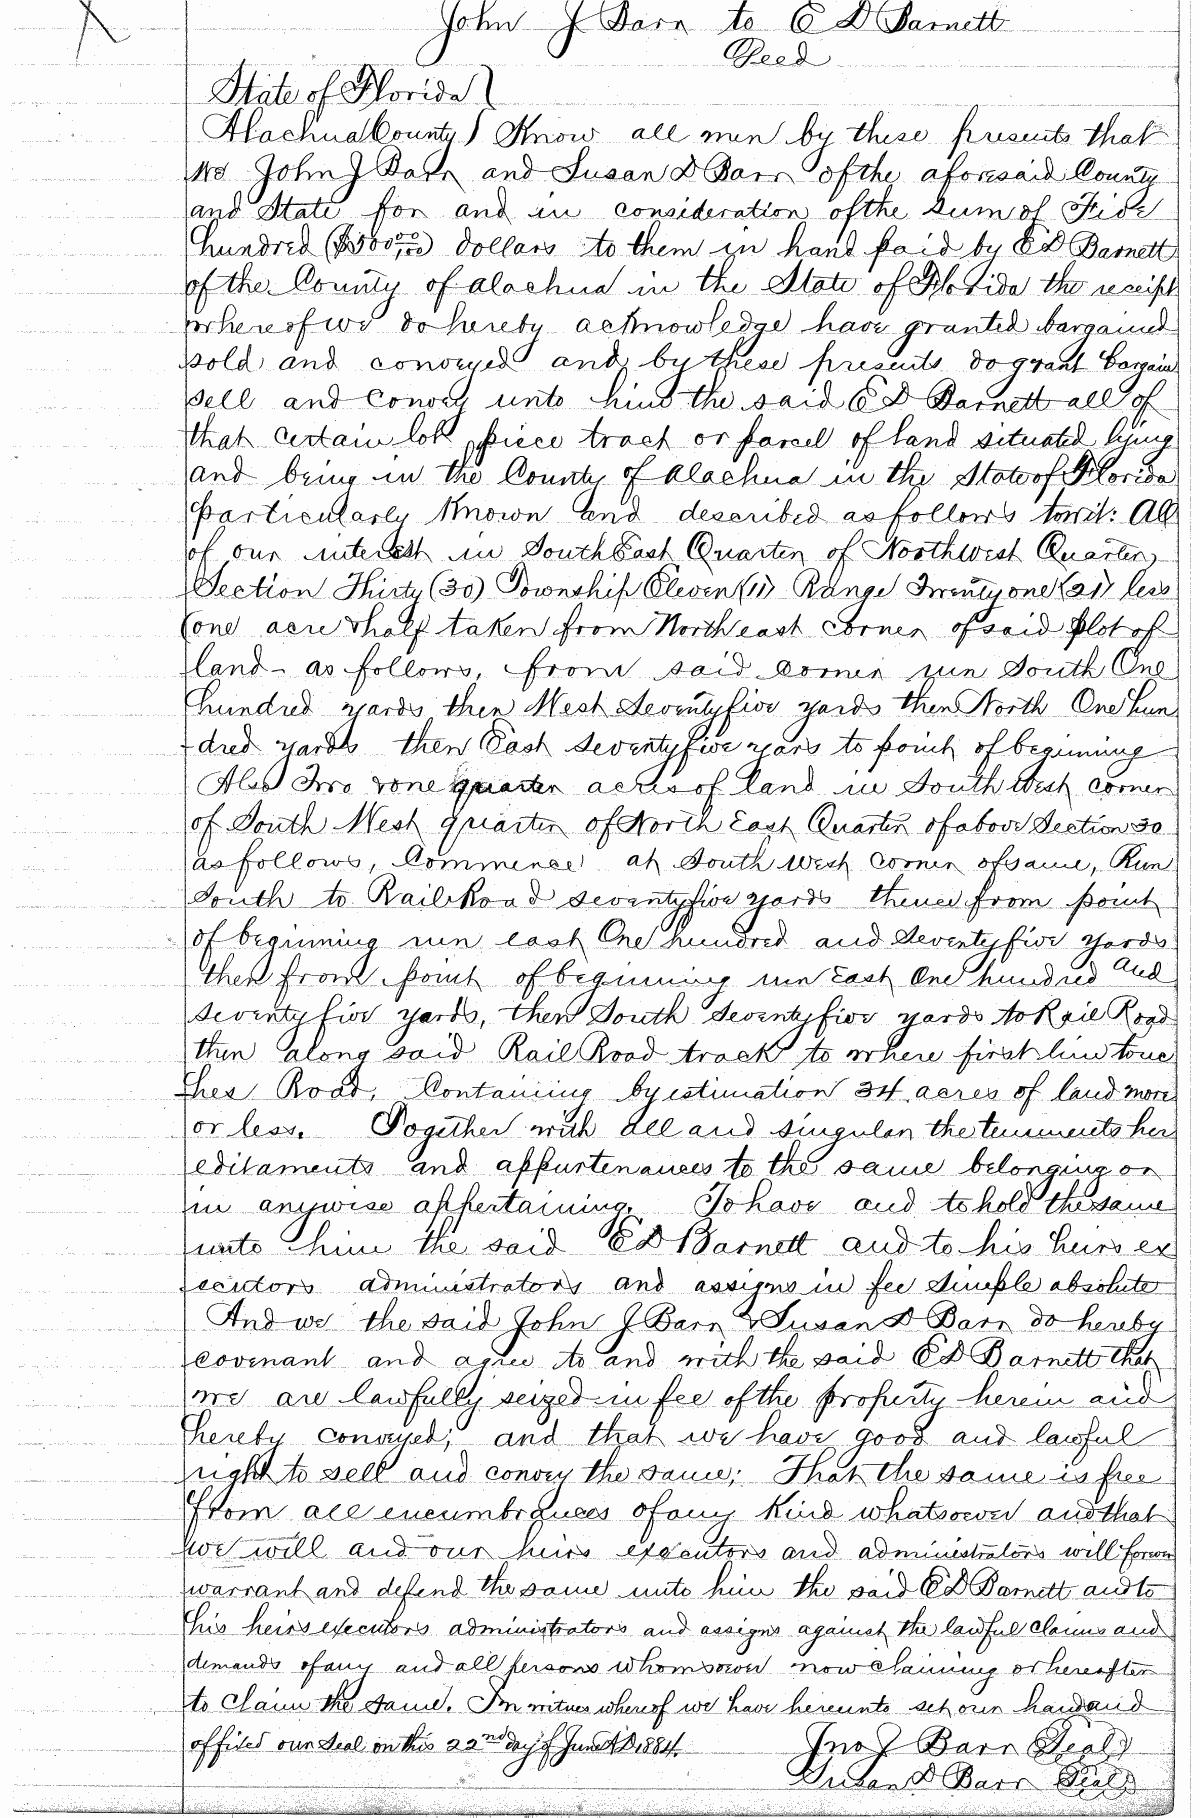 John J Barr to E D Barnett
Deed
State of Florida
Alachua County Know all men by these presents that
We John J Barr and Susan D Barr of the aforesaid County
and State for and in consideration of the sum of Five
hundred ($500 00/100) dollars to them in hand paid by E D Barnett
of the County of Alachua in the State of Florida the receipt
whereof we do hereby acknowledge have granted bargained
sold and conveyed and by these presents do grant bargain
sell and convey unto him the said E D Barnett all of
that certain lot, piece tract or parcel of land situated lying
and being in the County of Alachua in the State of Florida
Particularly Known and described as follows towit: All
of our interest in South East Quarter of Northwest Quarter,
Section Thirty (30) Township Eleven (11) Range Twenty one (21) less
(one acre & half taken from North east corner of said plot of
land - as follows, from said corner run South One
hundred yards then West Seventyfive yards then North One hun
-dred yards then East seventyfive years to point of beginning
Also Two & one quarter acres of land in South West corner
of South West quarter of North East Quarter of above Section 30
as follows, Commence at South West corner of same, Run
South to Rail Road seventyfive yards thence from point
of beginning run east One hundred and Seventyfive yards
then from point of beginning run East One hundred and
seventyfive yards, then South Seventyfive yards to Rail Road
then along said Rail Road track to where first line touc
-hes Road, Containing by estimation 34 acres of land more
or less. Together with all and singular the tenements her
editaments and appurtenances to the same belonging or
in anywise appertaining. To have and to hold the same
unto him the said E D Barnett and to his heirs ex
ecutors administrators and assigns in fee simple absolute
And we the said John J Barr & Susan D Barr do hereby
covenant and agree to and with the said E D Barnett that
we are lawfully seized in fee of the property herein and
hereby conveyed; and that we have good and lawful
right to sell and convey the same; That the same is free
from all encumbrances of any Kind whatsoever and that
we will and our heirs executors and administrators will forever
warrant and defend the same unto him the said E D Barnett and to
his heirs executors administrators and assigns against the lawful claims and
demands of any and all persons whomsoever now claiming or hereafter
to claim the same. In witness whereof we have hereunto set our hand and
affixed our Seal on this 22nd day of June A D 1884.
Jno J Barr (Seal)
Susan D Barr (Seal)